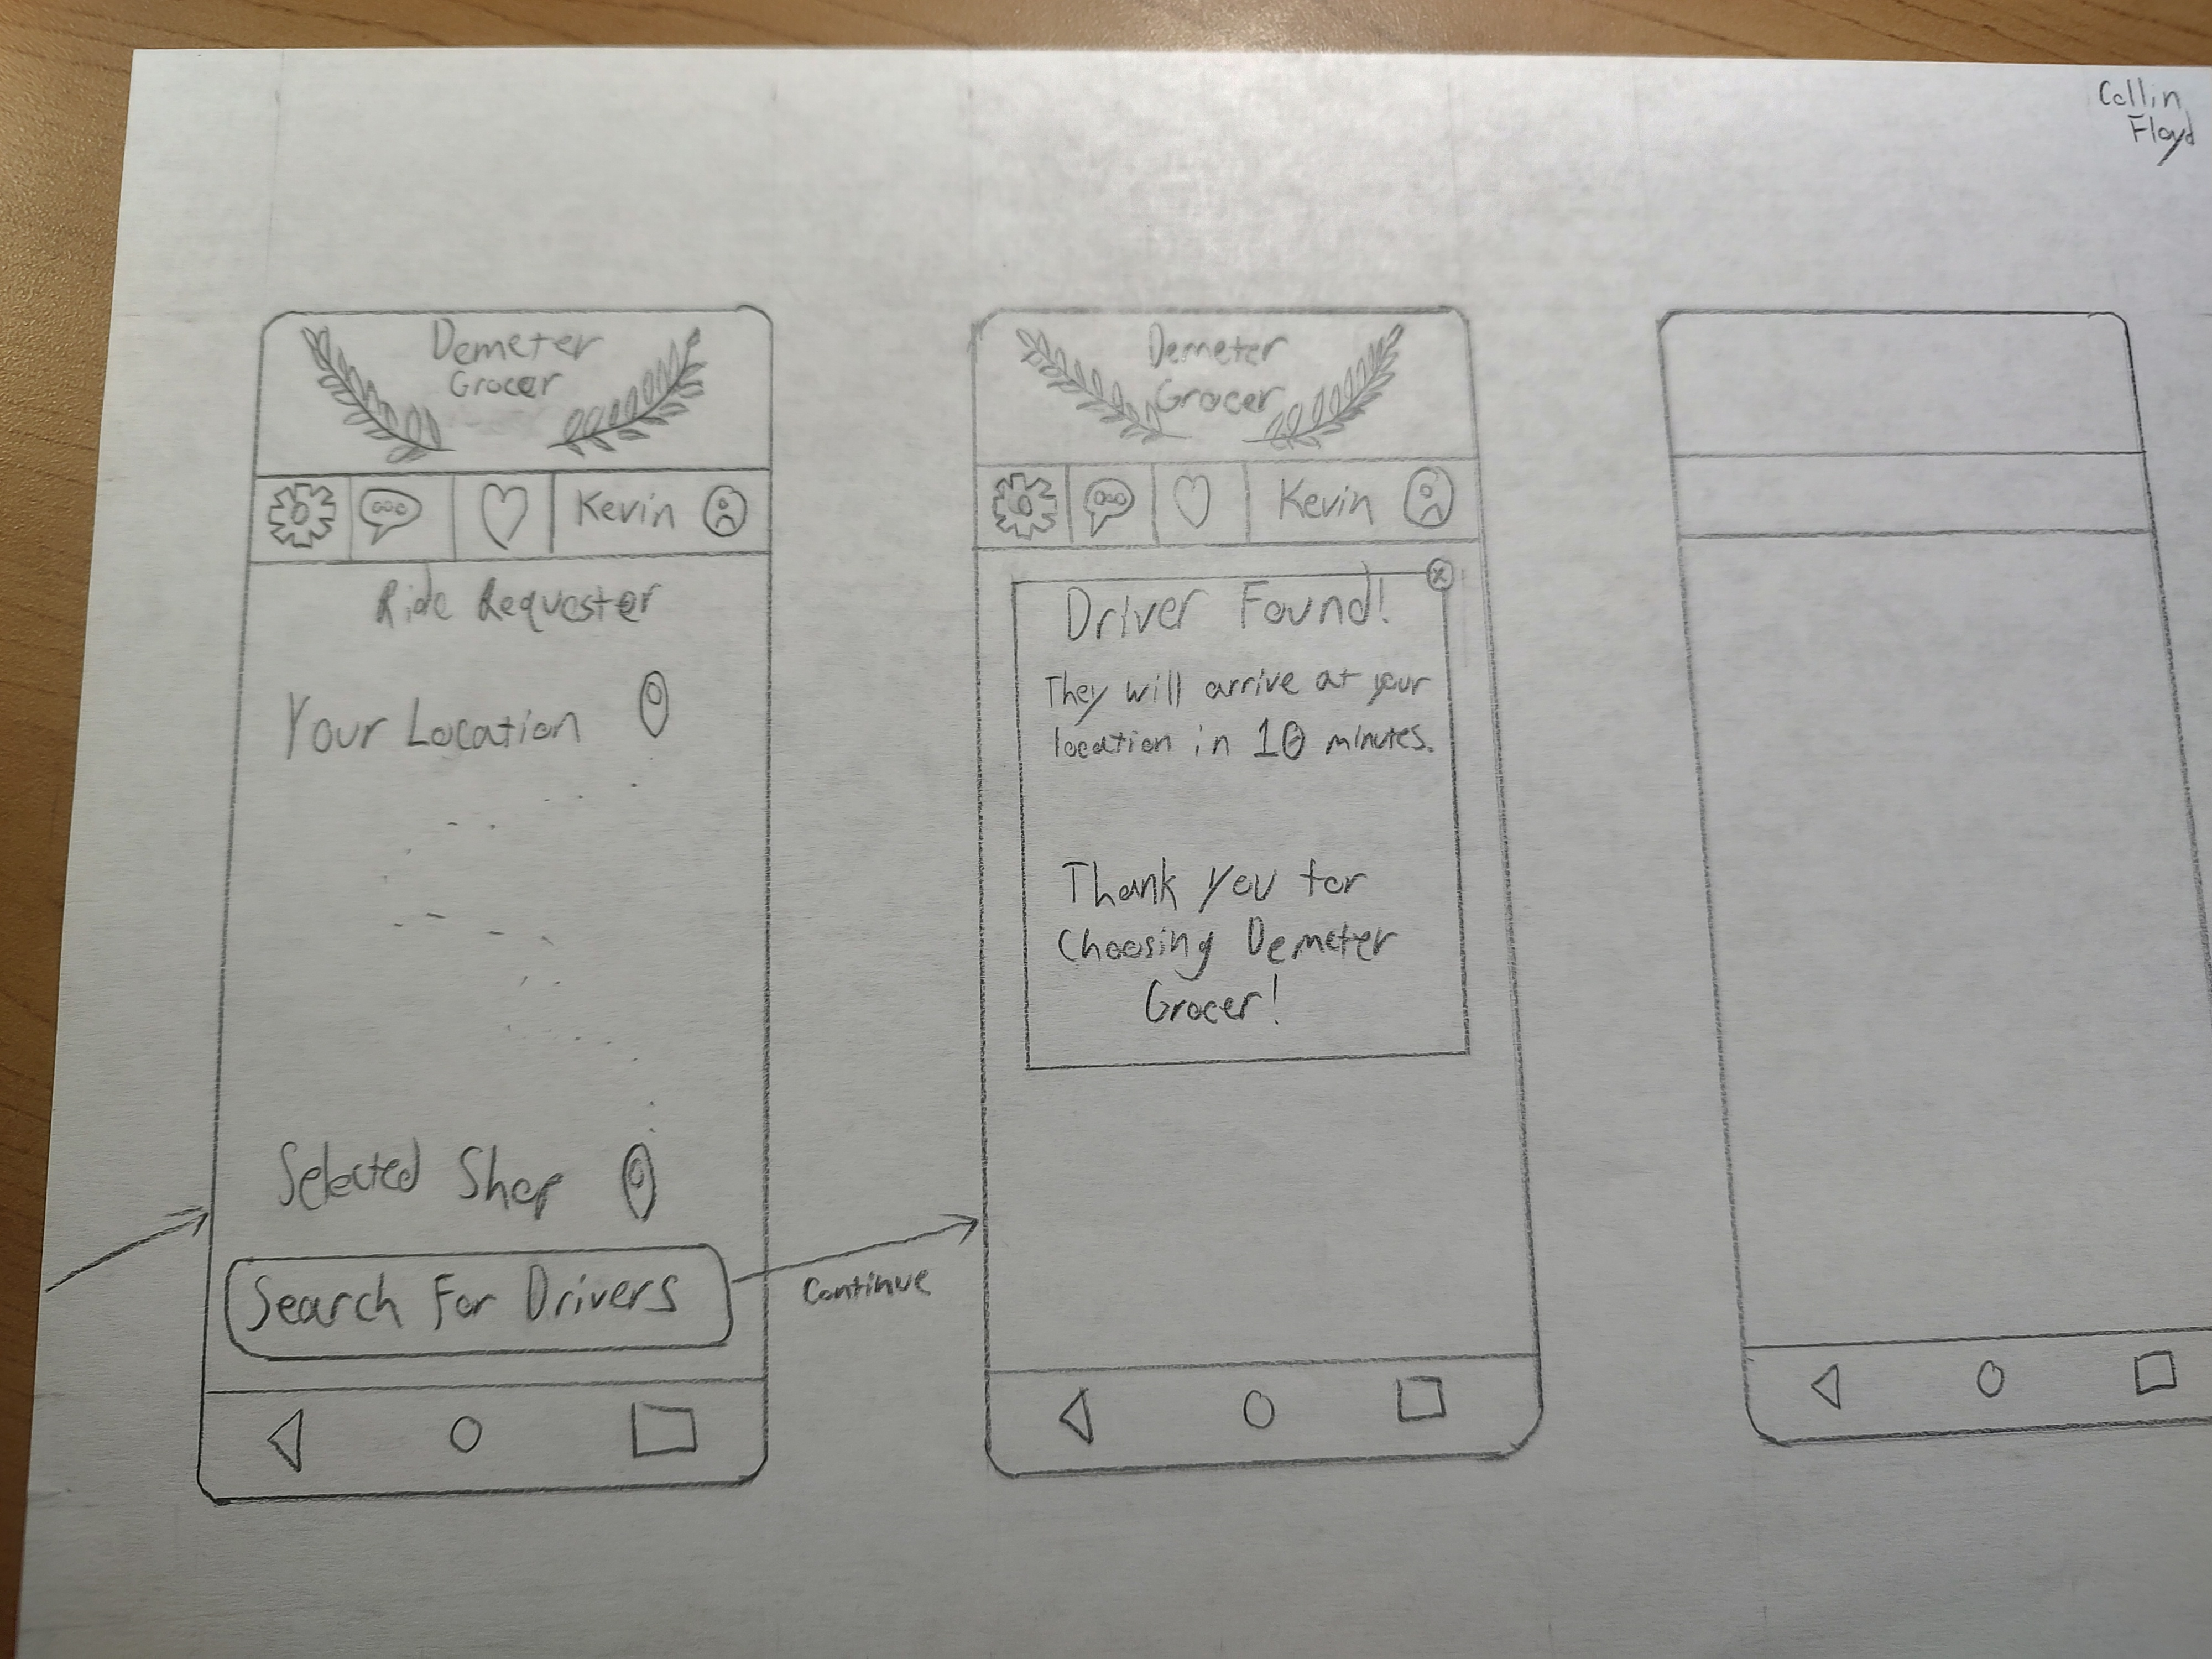 Collin
Floyd
Demeter
Grocer
Kevin
Ride Requester
Your Location
Selected Shop
Search For Drivers
Continue
Demeter
Grocer
Kevin
Driver Found!
They will arrive at your
location in 10 minutes.
Thank you for
Choosing Demeter
Grocer!